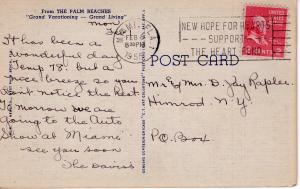 From THE PALM BEACHES
"Grand Vacationing — Grand Living"
Mon
It has been a
wonderful day
Temp 78. but a
nice breeze so you
don't notice the heat
Tomorrow we are
going to the Auto
Show at Miami
see you soon
The Davis's
MIAMI
FEB 6
8 PM
195
NEW HOPE FOR HEARTS
SUPPORT
THE HEART
POST CARD
Mr & Mrs D. Jay Rapler
Himrod N.Y.
P.O. Box